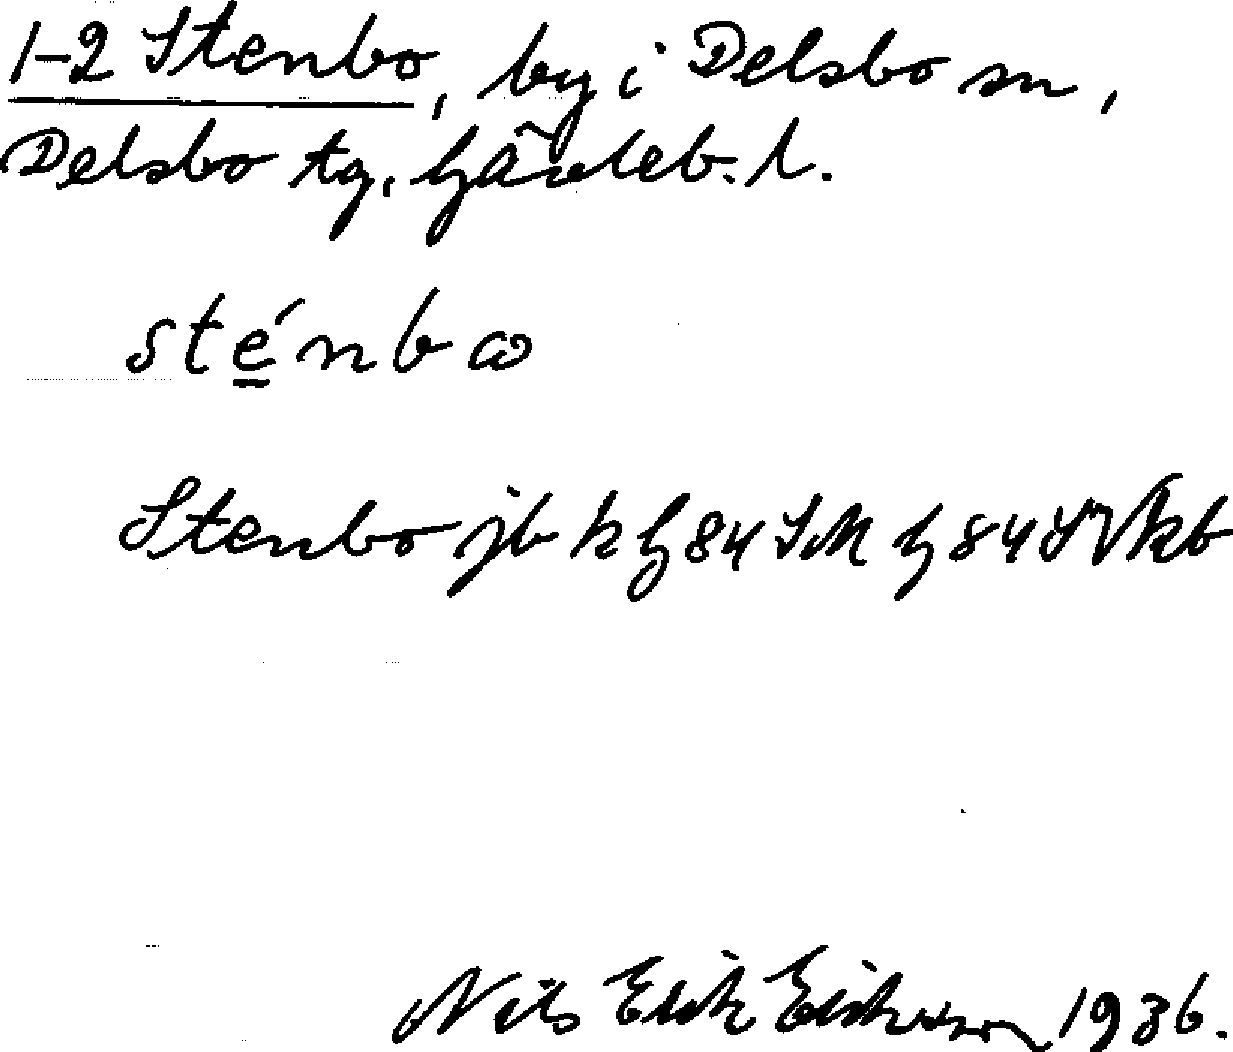 1-2 Stenbo, by i Delsbo sn,
Delsbo tg, Gävleb. l.
sténbω
Stenbo jb k G 84 SM G 84 SV kb
Nils Erik Eriksson 1936.